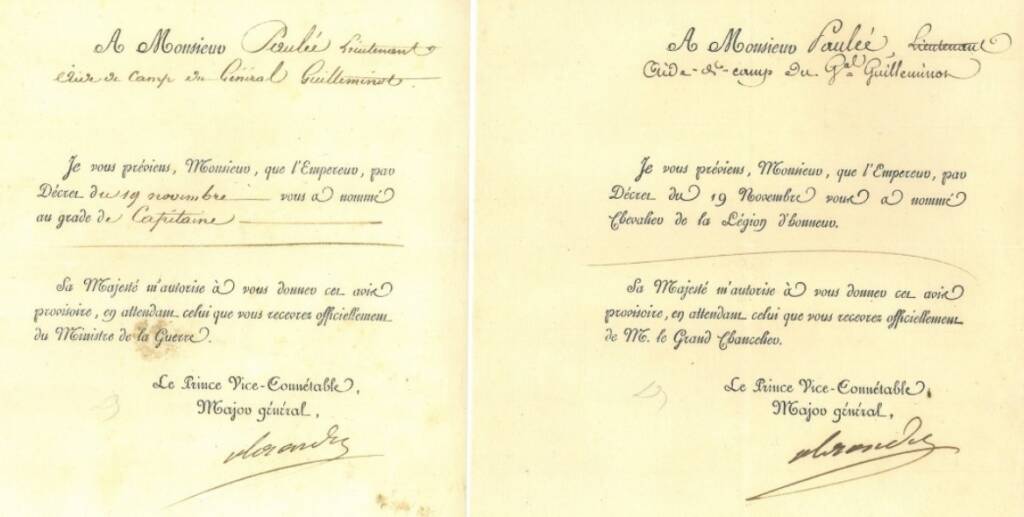 A Monsieur Paulée Lieutenant
Aide de camp du Général Guilleminot
Je vous préviens, Monsieur, que l'Empereur, par
Décret du 19 novembre vous a nommé
au grade de Capitaine
Sa Majesté m'autorise à vous donner cet avis
provisoire, en attendant celui que vous recevrez officiellement
du Ministre de la Guerre.
Le Prince Vice-Connétable,
Major général,
A Monsieur Paulée, Lieutenant
Aide-de-camp du Gal Guilleminot
Je vous préviens, Monsieur, que l'Empereur, par
Décret du 19 Novembre vous a nommé
Chevalier de la Légion d'honneur.
Sa Majesté m'autorise à vous donner cet avis
provisoire, en attendant celui que vous recevrez officiellement
de M. le Grand Chancelier.
Le Prince Vice-Connétable,
Major général,